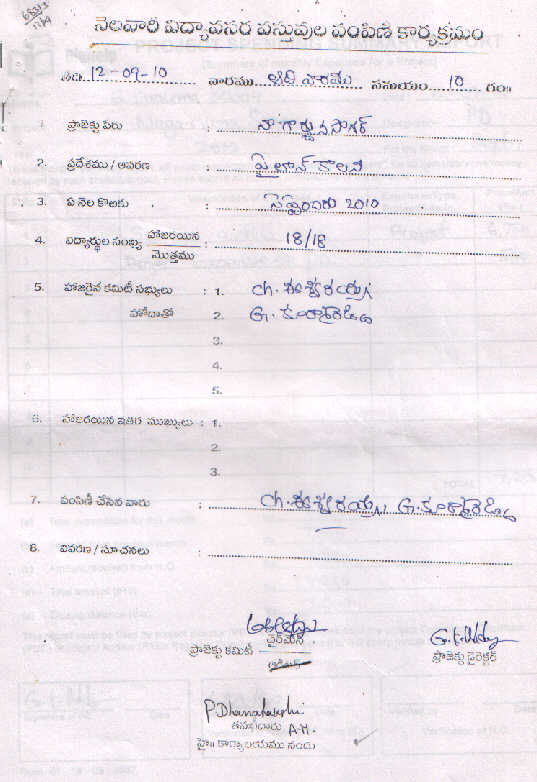 నెలవారి విద్యావసర వస్తువుల పంపిణి కార్యక్రమం
తేది 12-09-10 వారము సమయం 10 గం॥
1. ప్రాజెక్టు పేరు : నాగార్జునసాగర్
2. ప్రదేశము / ఆవరణ : పైలాన్ కాలని
3. ఏ నెల కొఱకు : సెప్టెంబరు 2010
4. విద్యార్థుల సంఖ్య హాజరయిన : 18/18
మొత్తము
5. హాజరైన కమిటీ సభ్యులు : 1. ch. ఈశ్వరయ్య
హోదాతో 2. G. కూర్మారెడ్డి
3.
4.
5.
6. హాజరయిన ఇతర ముఖ్యులు : 1.
2.
3.
7. పంపిణీ చేసిన వారు : ch. ఈశ్వరయ్య, G. కూర్మారెడ్డి
8. వివరణ / సూచనలు :
చైర్మన్
ప్రాజెక్టు కమిటీ
ప్రాజెక్టు డైరెక్టర్
P. Dhanalakshmi
తనిఖీదారు A.M.
హై॥ కార్యాలయము నందు